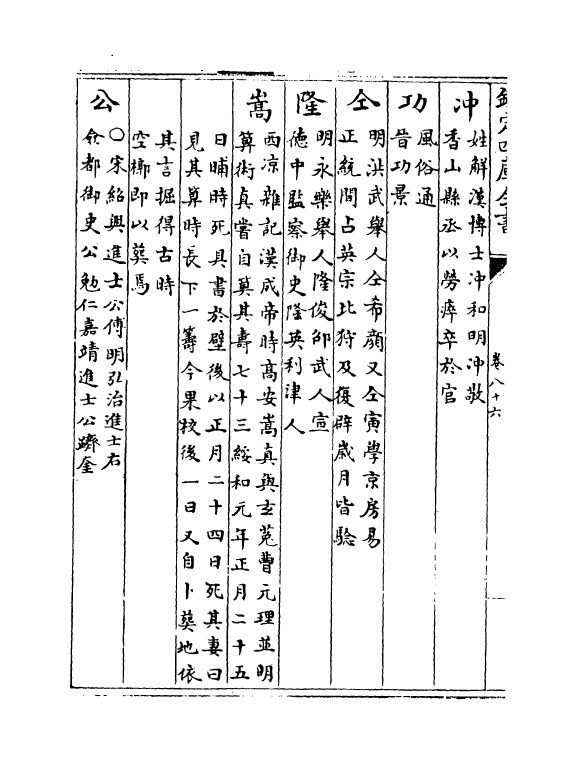 欽定四庫全書
卷八十六
冲
姓解漢博士冲和明冲敬
香山縣丞以勞瘁卒於官
功
風俗通
晉功景
仝
明洪武舉人仝希顔又仝寅學京房易
正統間占英宗北狩及復辟歲月皆騐
隆
明永樂舉人隆俊邵武人宣
德中監察御史隆英利津人
嵩
西凉雜記漢成帝時高安嵩真與𤣥菟曹元理並明
算術真嘗自筭其壽七十三綏和元年正月二十五
日晡時死具書於壁後以正月二十四日死其妻曰
見其算時長下一籌今果校後一日又自卜葬地依
其言掘得古時
空槨即以葬焉
公
○宋紹興進士公傅明弘治進士右
僉都御史公勉仁嘉靖進士公躋奎